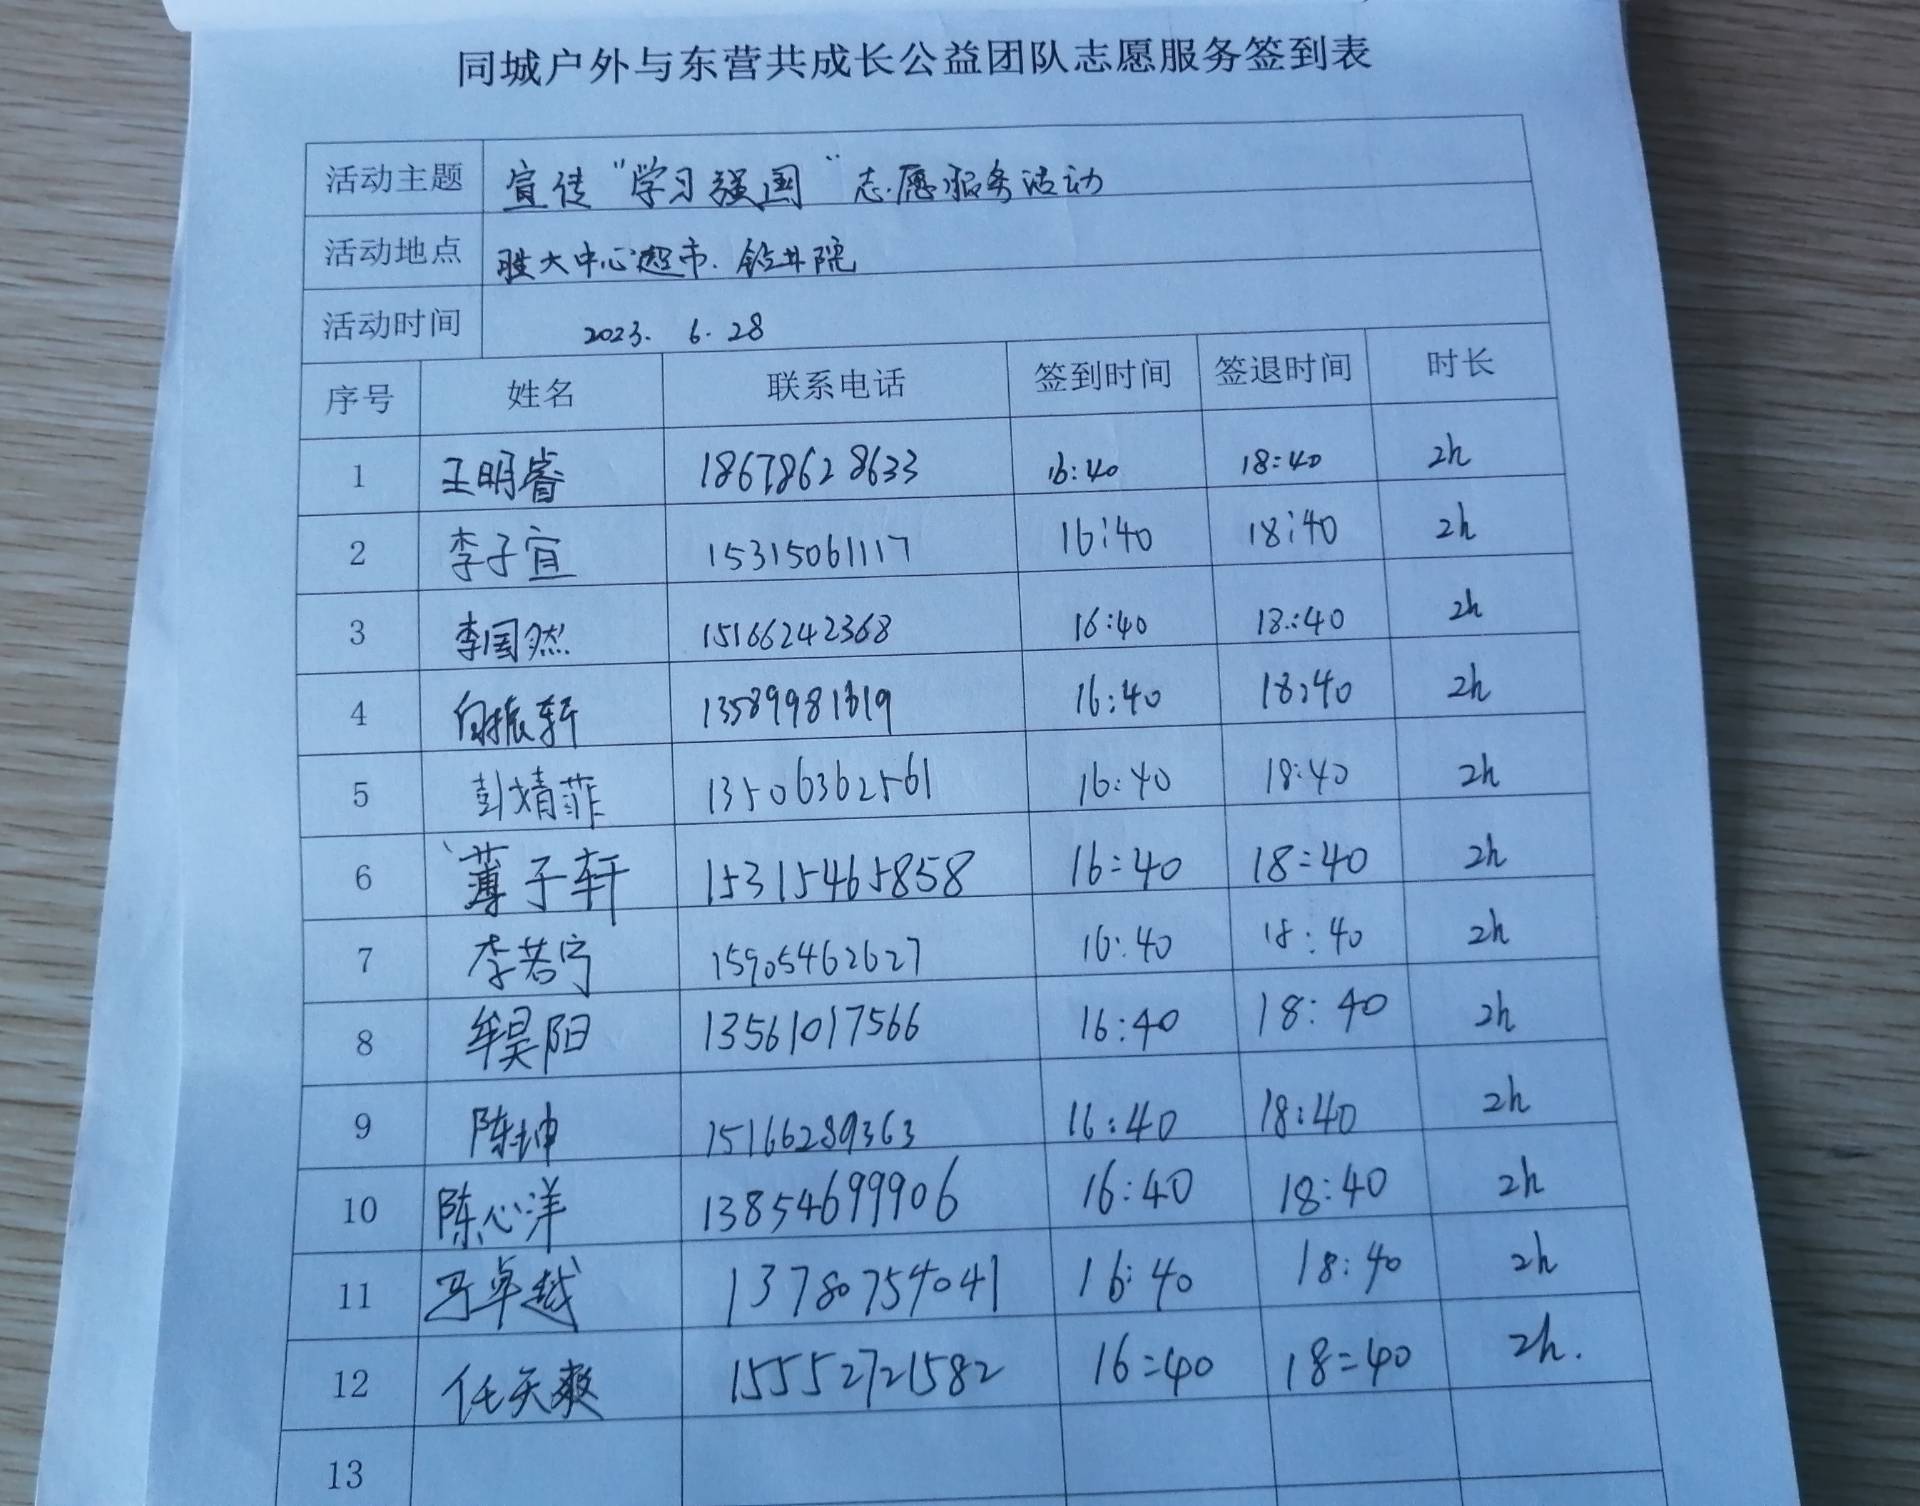 同城户外与东营共成长公益团队志愿服务签到表
活动主题 宣传"学习强国"志愿服务活动
活动地点 胜大中心超市.钻井院
活动时间 2023. 6.28
序号 姓名 联系电话 签到时间 签退时间 时长
1 王明睿 18678628633 16:40 18:40 2h
2 李子宜 15315061117 16:40 18:40 2h
3 李国然 15166242368 16:40 18:40 2h
4 向振轩 13589981619 16:40 18:40 2h
5 彭婧菲 13506362561 16:40 18:40 2h
6 薄子轩 15315465858 16:40 18:40 2h
7 李若宁 15905462627 16:40 18:40 2h
8 牟昊阳 13561017566 16:40 18:40 2h
9 陈坤 15166289363 16:40 18:40 2h
10 陈心洋 13854699906 16:40 18:40 2h
11 马卓越 13780754041 16:40 18:40 2h
12 任天爽 15552721582 16:40 18:40 2h.
13